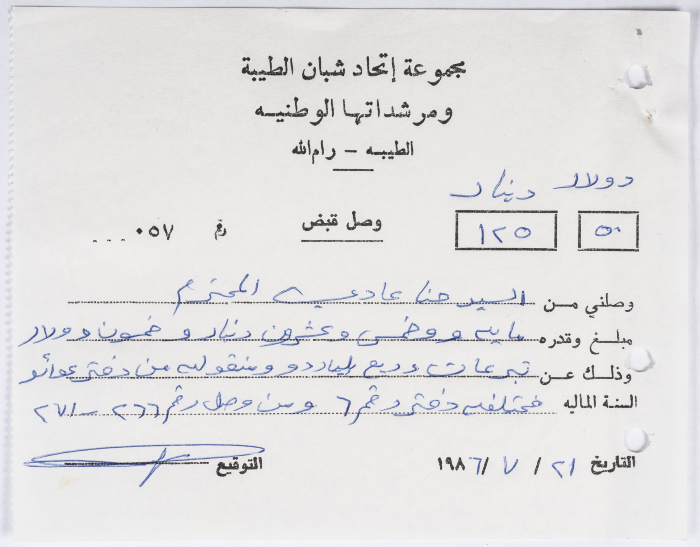 مجموعة إتحاد شبان الطيبة
ومرشداتها الوطنيه
الطيبه - رام الله
دولار دينار
٥٠ ١٢٥
وصل قبض
رقم ٠٥٧
وصلني مـن السيد حنا عادي المحترم
مبلـغ وقدره مايه و وخمس وعشرون دنيار و خمسون دولار
وذلـك عـن تبرعات وريع بلياردو ومنقوله من دفتر عوائد
السنة الماليه مختلفه دفتر رقم ٦ ومن وصل رقم ٢٦٦ - ٢٧١
التاريخ ٢١ / ٧ / ١٩٨٦ التوقيع